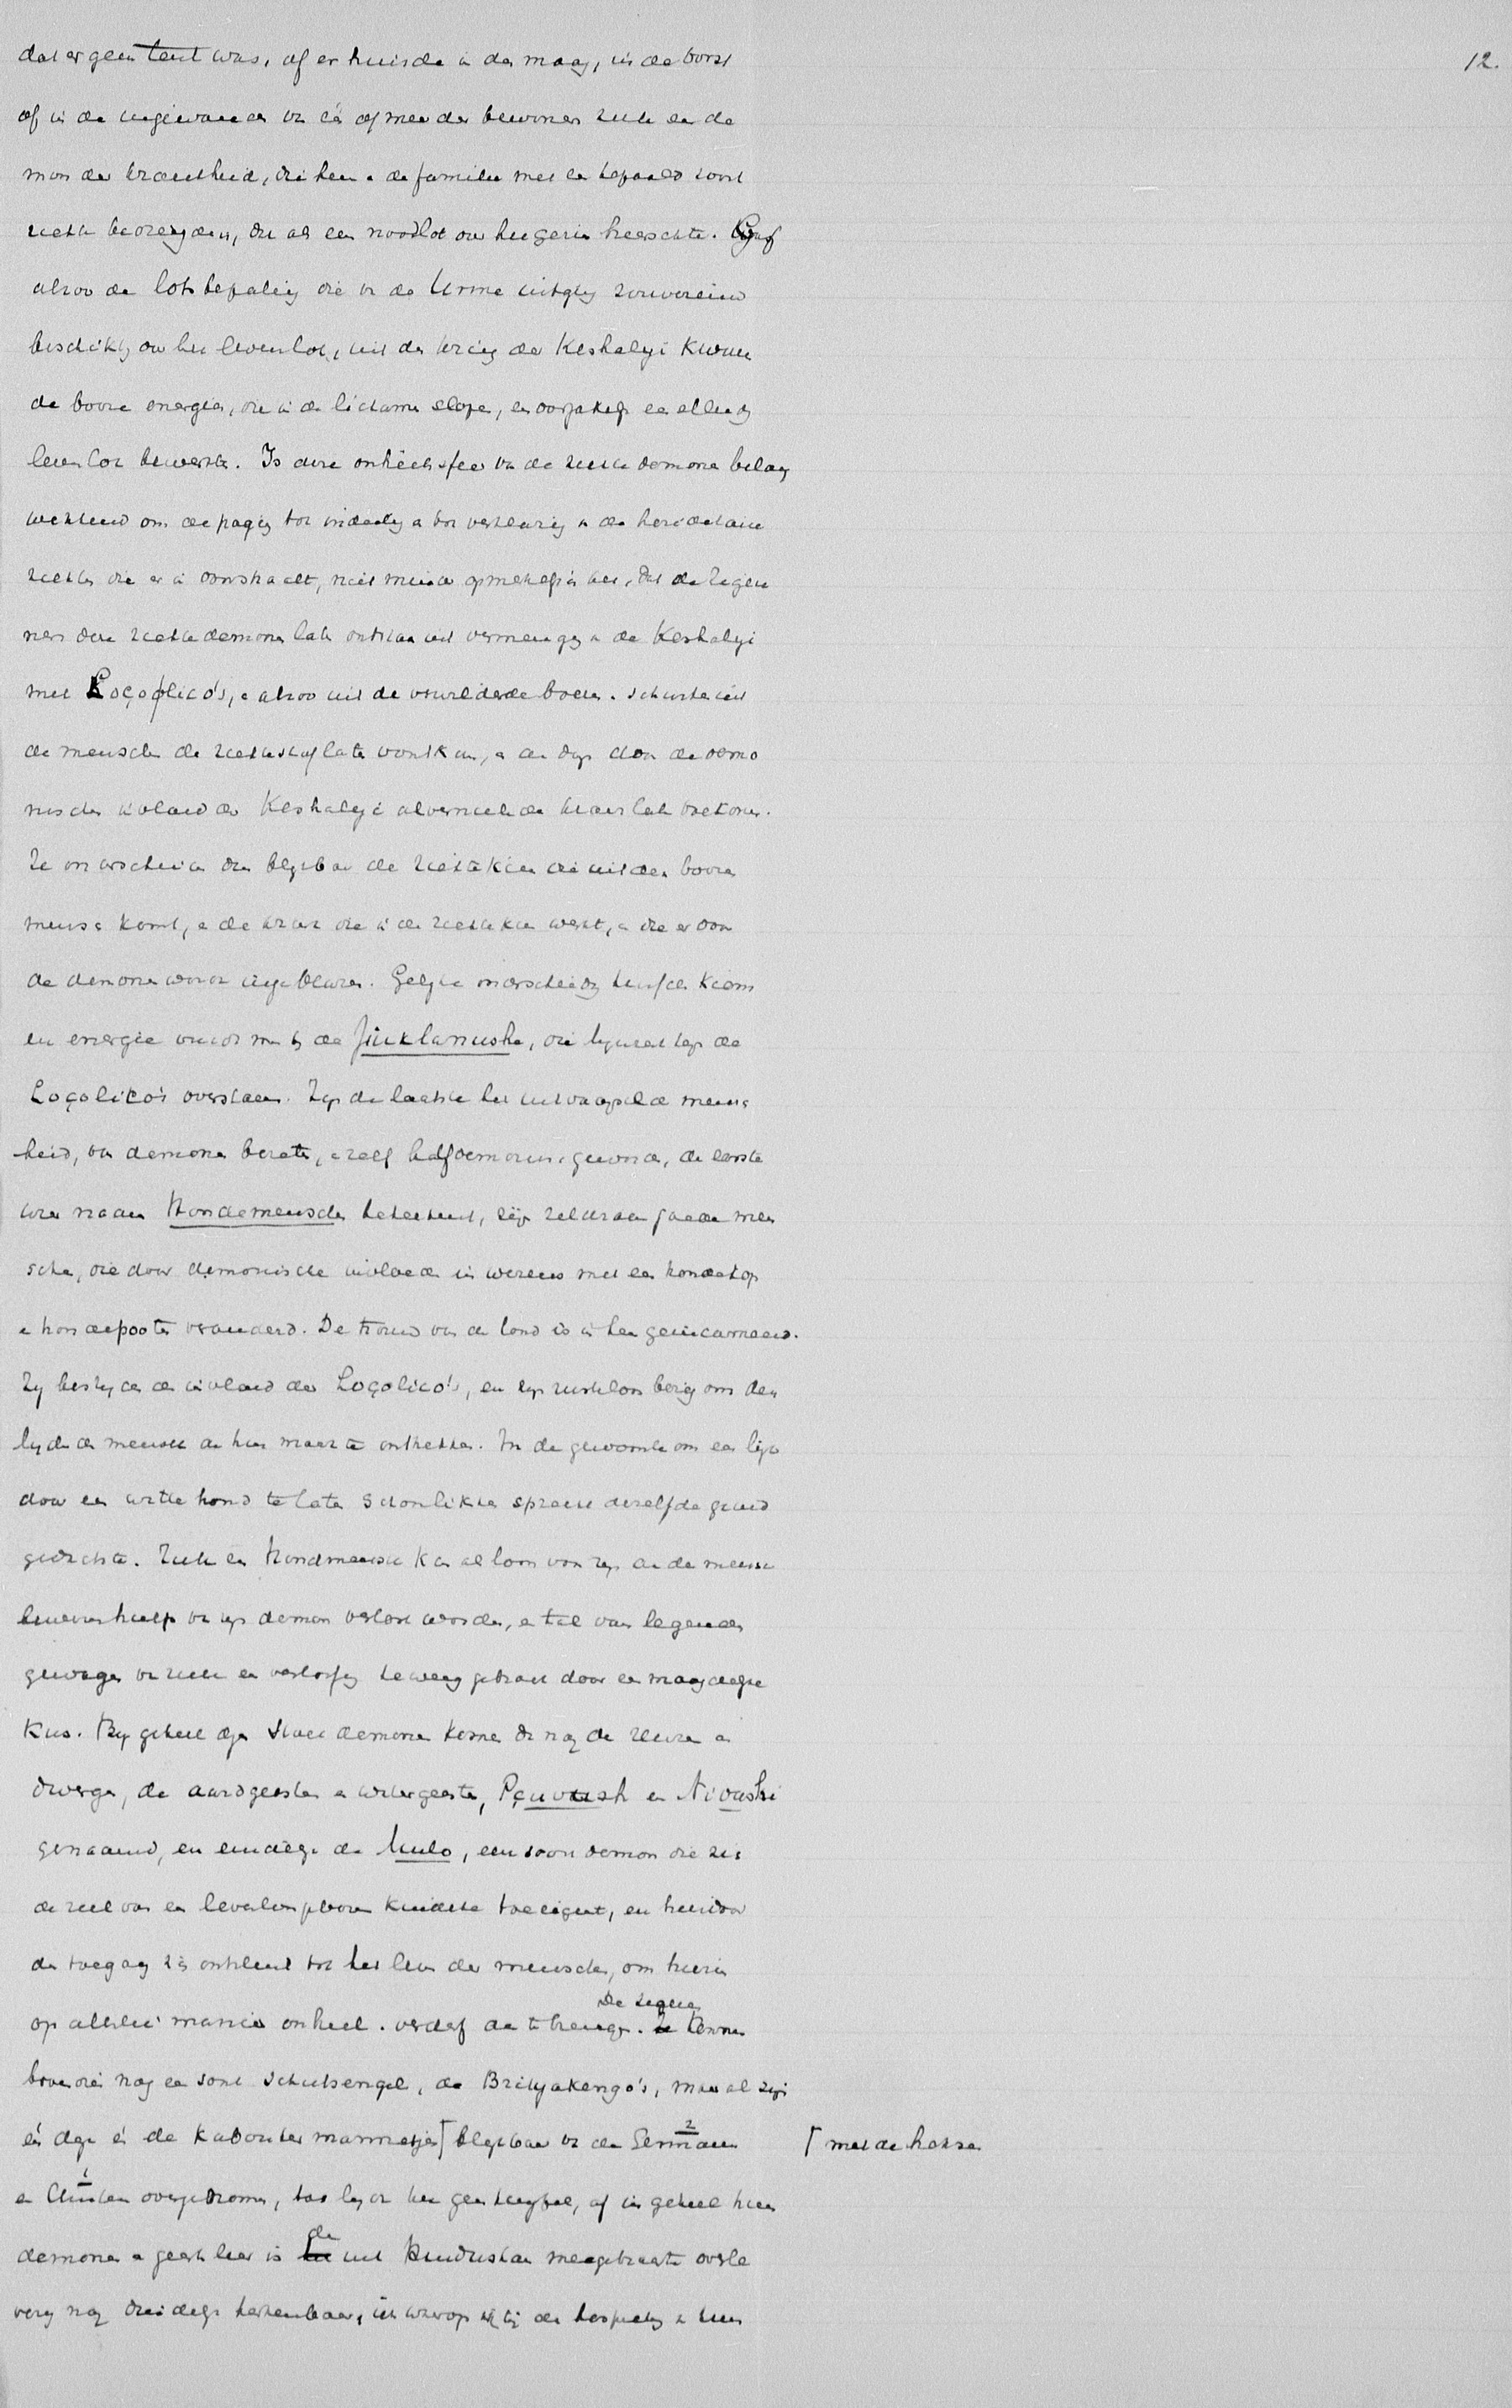 12.
dat er geen tent was, of er huisde in de maag, in de borst
of in de ingewanden van één of meer der bewoners zulk een de
mon der krankheid, die hen en de familie met een bepaald soort
ziekte bedreigden, die als een noodlot over hen heerschte.
alzoo de lotsbepaling die van de Urme uitging souverein
beschikte over het levenslot, uit den kring der Keshalyi kwam
de booze energie, die in de lichamen sloop, en oorzakelijk een ellendig
levenslot bewerkte. Is deze onheilssfeer van de ziekte demonen belang
wekkend om de poging tot indeeling en tot verklaring van de
ziekten die er in doorstraalt, niet minder opmerkelijk is het, dat de Zigeu
ners deze ziekte demonen laten ontstaan uit vermenging van de Keshalyi
met Loçolico's, en alzoo uit de verwilderde booze
de menschen de ziektestof laten voortkomen, en die dan door de demo
nischen invloed der Keshalyi
Ze onderscheiden dus blijkbaar de ziektekiem die uit den boozen
mensch komt, en de kracht die in de ziektekiem werkt, en die er door
de demonen wordt ingeblazen. Gelijke onderscheiding tusschen kiem
en energie vindt men bij de Juklanushe, die lijnrecht tegen de
Loçolico's overstaan. Zijn de laatste het mensch
heid, van demonen bezeten, en zelf half demonisch geworden, de eerste
wier naam Hondemenschen beteekent, zijn men
schen, die door demonische invloeden in wezens met een hondekop
en hondepooten veranderd. De trouw van den hond is in hen geïncarneerd.
Zij bestrijden den invloed der Loçolico's, en zijn rusteloos bezig om den
lijdenden mensch aan hun macht te ontrekken. In de gewoonte om een lijk
door een witte hond te laten schoonlikken spreekt dezelfde
gedachte. Zulk een Hondmensch kan als loon voor zijn aan de mensch
bewezen hulp van zijn demon verlost worden, en tal van legenden
gewagen van zulk een verlossing teweeg gebracht door een maagdelijke
kus. Bij geheel dezen stoet demonen komen dan nog de reuzen en
dwergen, de aardgeesten en watergeesten, Pçuvush en Nivashi
genaamd, en eindelijk de Mulo, een soort demon die zich
de ziel van een levenloos geboren kindeke toeeigent, en hierdoor
den toegang zich ontsluit tot het leven der menschen, om hierin
op allerlei manier onheil en verderf aan te brengen. De Zigeu kennen
bovendien nog een soort schutsengel, de Britçakengo's, maar al zijn
én deze én de kaboutermannetjes [ blijkbaar van de Germanen 2
[ met de heksen
en Christen 1 overgenomen, toch lijdt het geen twijfel, of in geheel hun
demonen en geestleer is de uit Hindustan meegebrachte overle
vering nog duidelijk herkenbaar, iets waarop wij bij de bespreking van hun